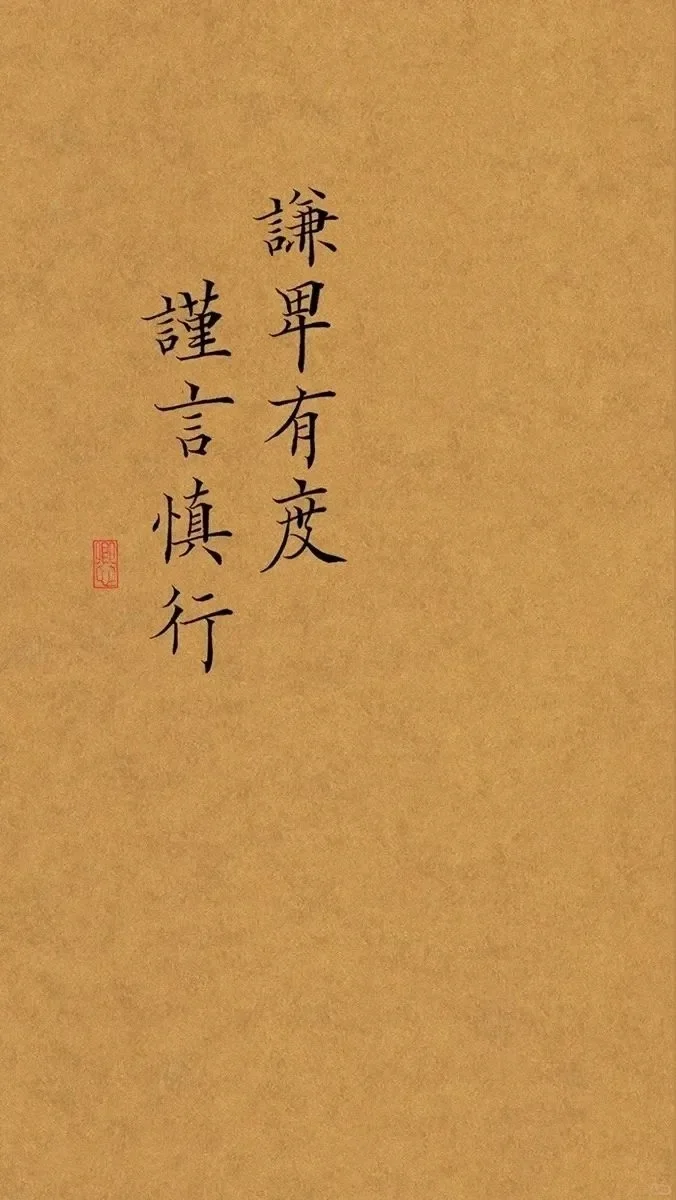 謙卑有度
謹言慎行